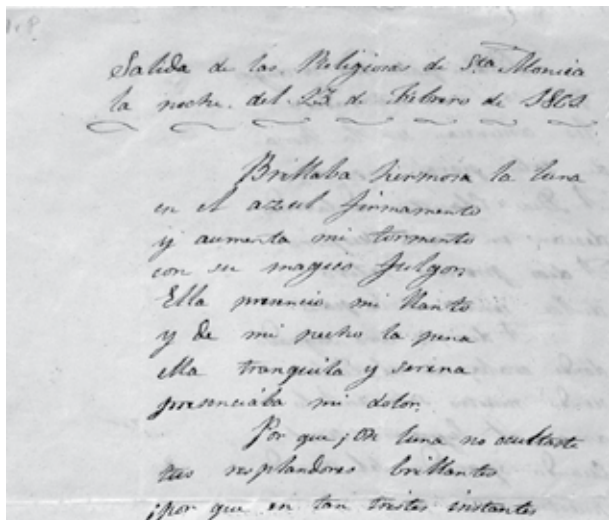 Salida de las Religiosas de Sta Monica
la noche. del 23 de Febrero de 1862
Brillaba hermosa la luna
en el azul firmamento
y aumenta mi tormento
con su magico fulgor.
Ella presencio mi llanto
y de mi pecho la pena
ella tranquila y serena
presenciába mi dolor.
Por que ¡oh luna no ocultaste
tus resplandores brillantes
¡por que en tan tristes instantes